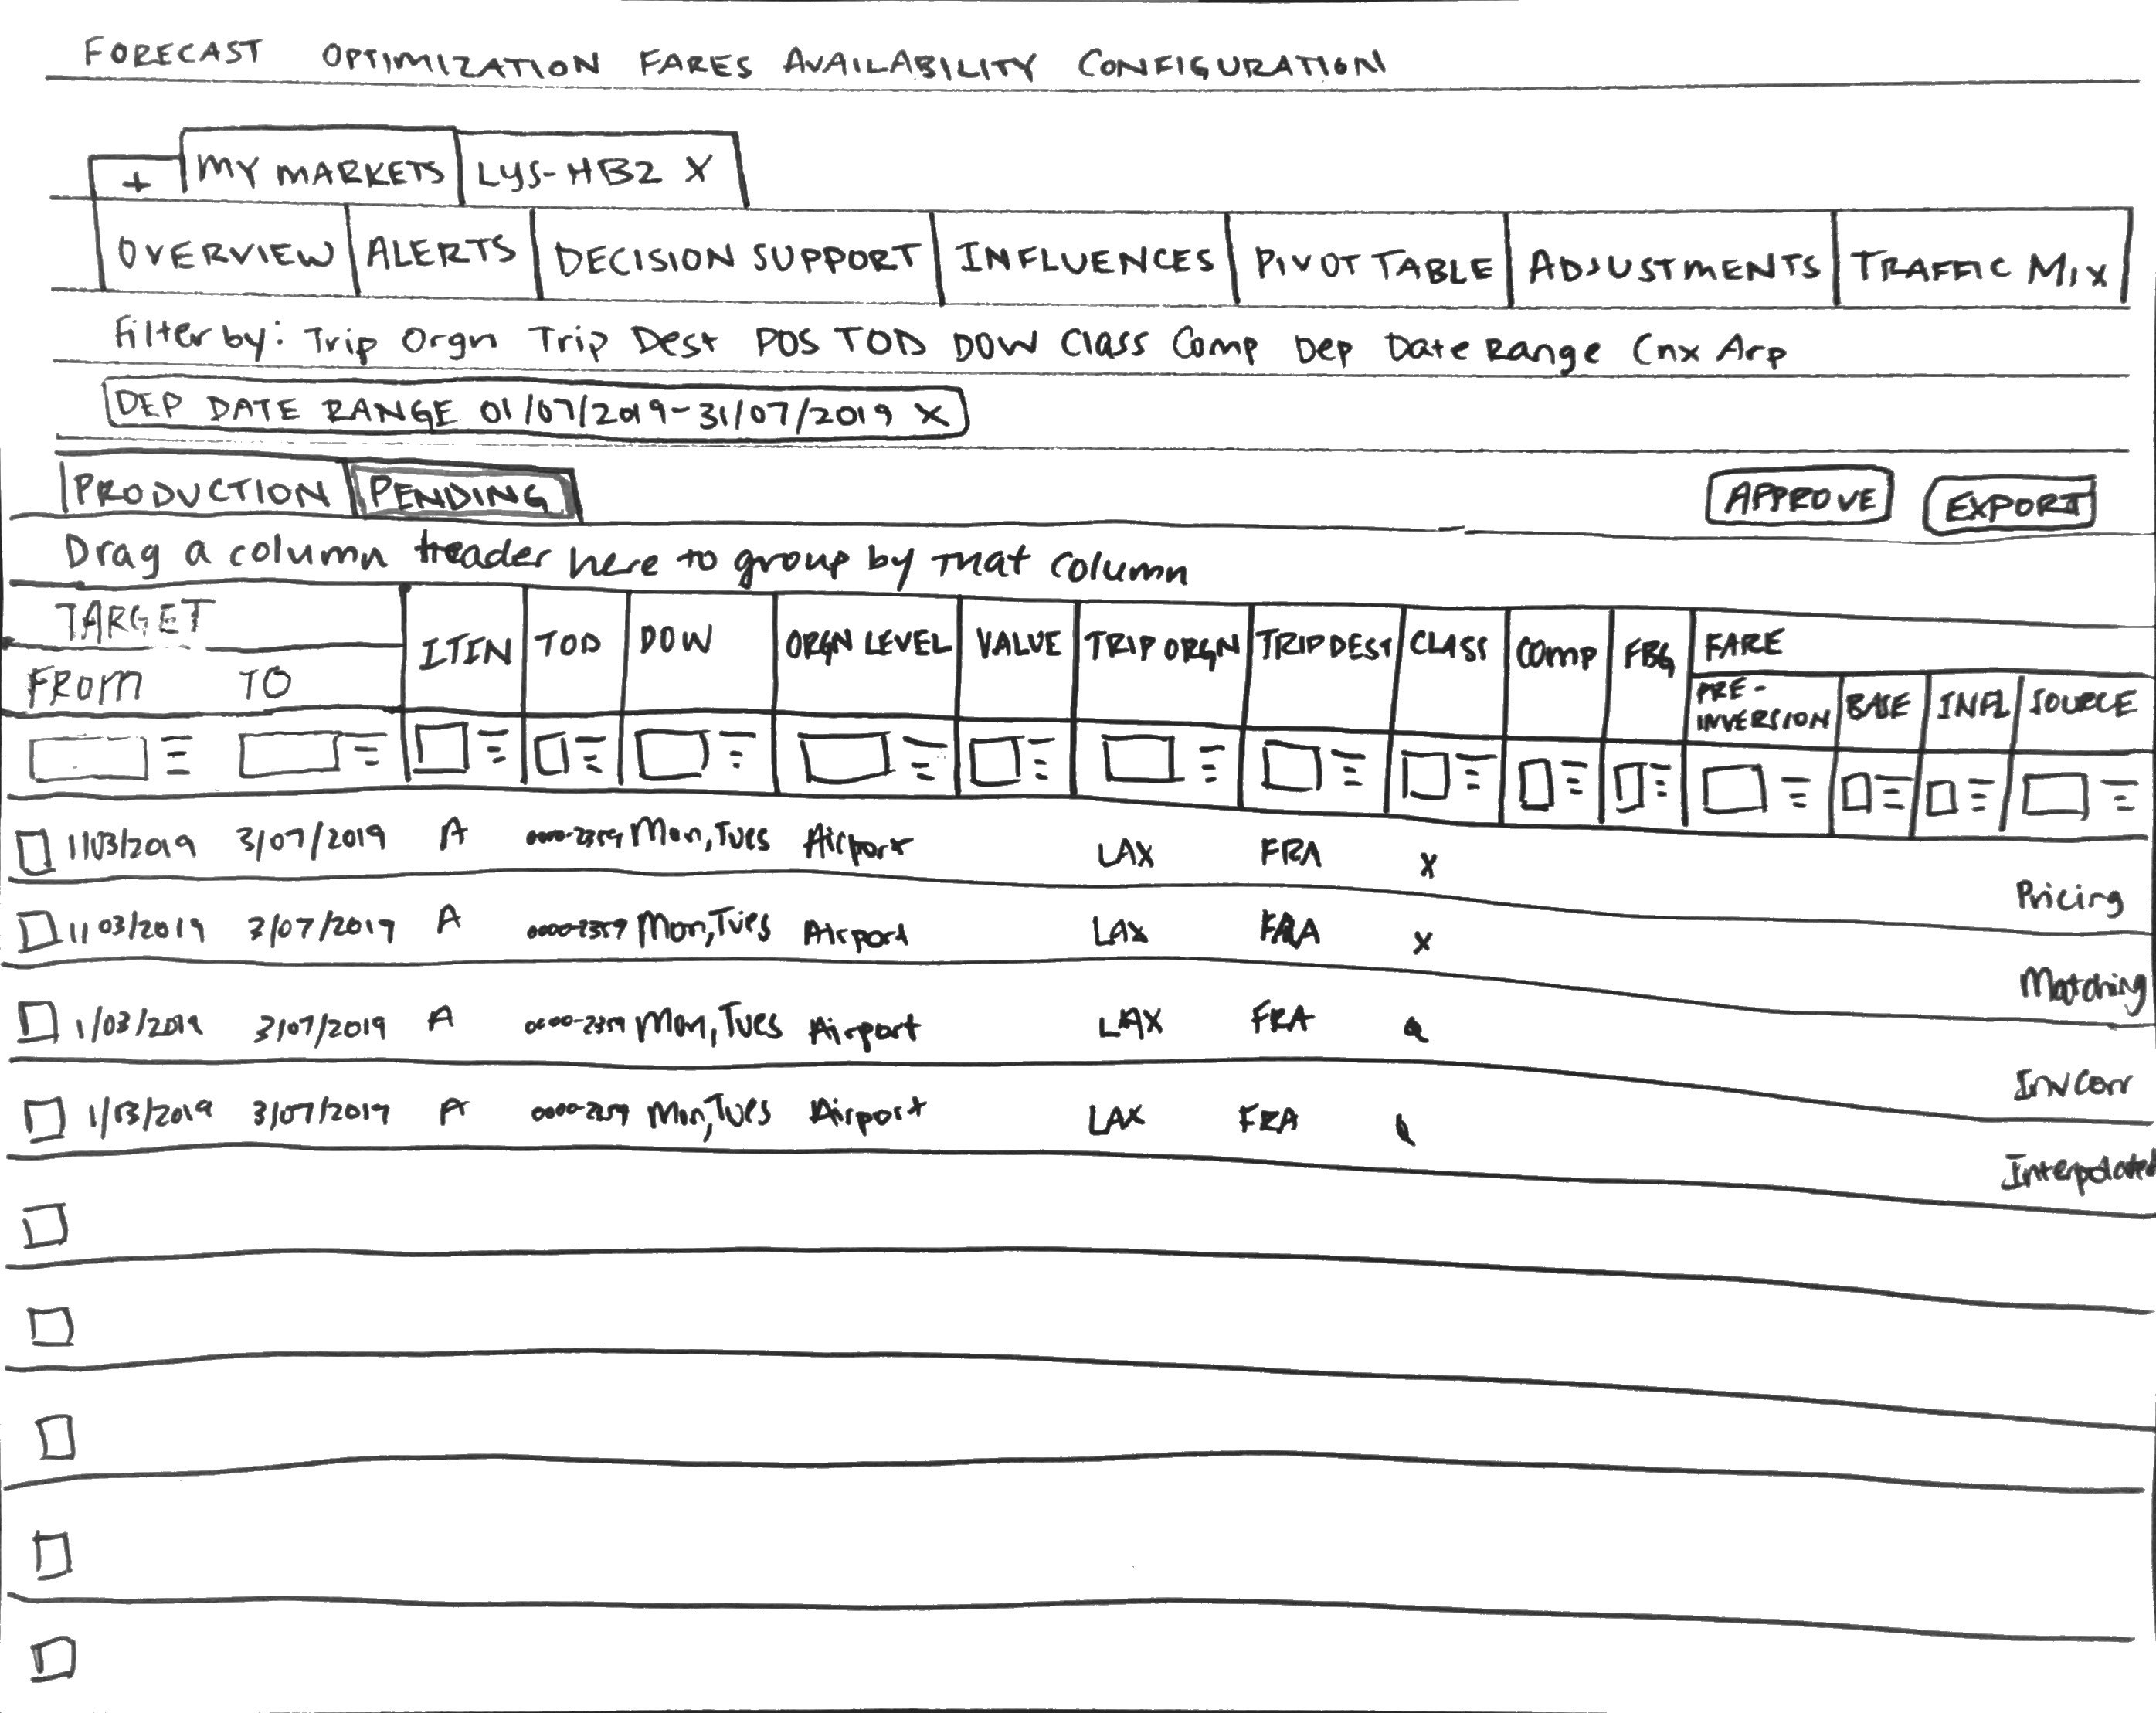 FORECAST OPTIMIZATION FARES AVAILABILITY CONFIGURATION
+ MY MARKETS LYS-HB2 X
OVERVIEW ALERTS DECISION SUPPORT INFLUENCES PIVOT TABLE ADJUSTMENTS TRAFFIC MIX
Filter by: Trip Orgn Trip Dest POS TOD DOW Class Comp Dep Date Range Cnx Arp
DEP DATE RANGE 01/07/2019-31/07/2019 X
PRODUCTION PENDING APPROVE EXPORT
Drag a column header here to group by that column
TARGET ITIN TOD DOW ORGN LEVEL VALUE TRIP ORGN TRIP DEST CLASS COMP FBG FARE
FROM TO PRE-INVERSION BASE INFL SOURCE
11/03/2019 3/07/2019 A 0000-2359 Mon, Tues Airport LAX FRA X Pricing
11 03/2019 3/07/2019 A 0000-2359 Mon, Tues Airport LAX FRA X Matching
1/03/2019 3/07/2019 A 0000-2359 Mon, Tues Airport LAX FRA Q InvCorr
3/07/2019 A 0000-2359 Mon, Tues Airport LAX FRA Interpolated